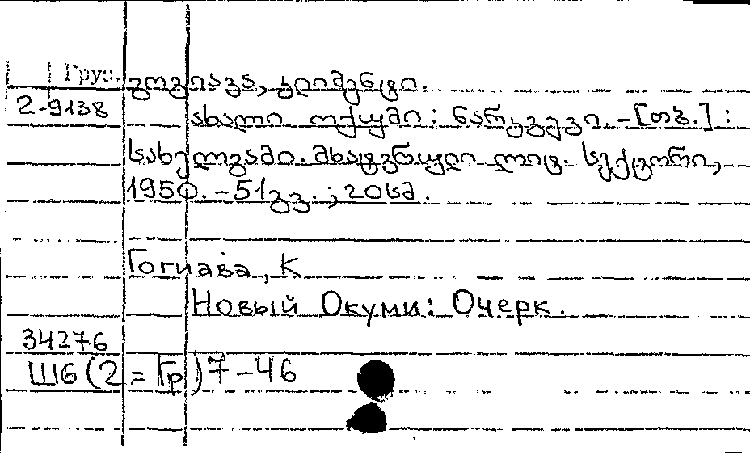 Груз. გოგიავა, კლიმენტი.
2-9138 ახალი ოქუმი: ნარკვევი. -[თბ.] :
სახელგამი. მხატვრული ლიტ. სექტორი,
1950. -51 გვ. ; 20სმ.
Гогиава, К
Новый Окуми: Очерк.
34276
Ш6(2=Гр)7-46